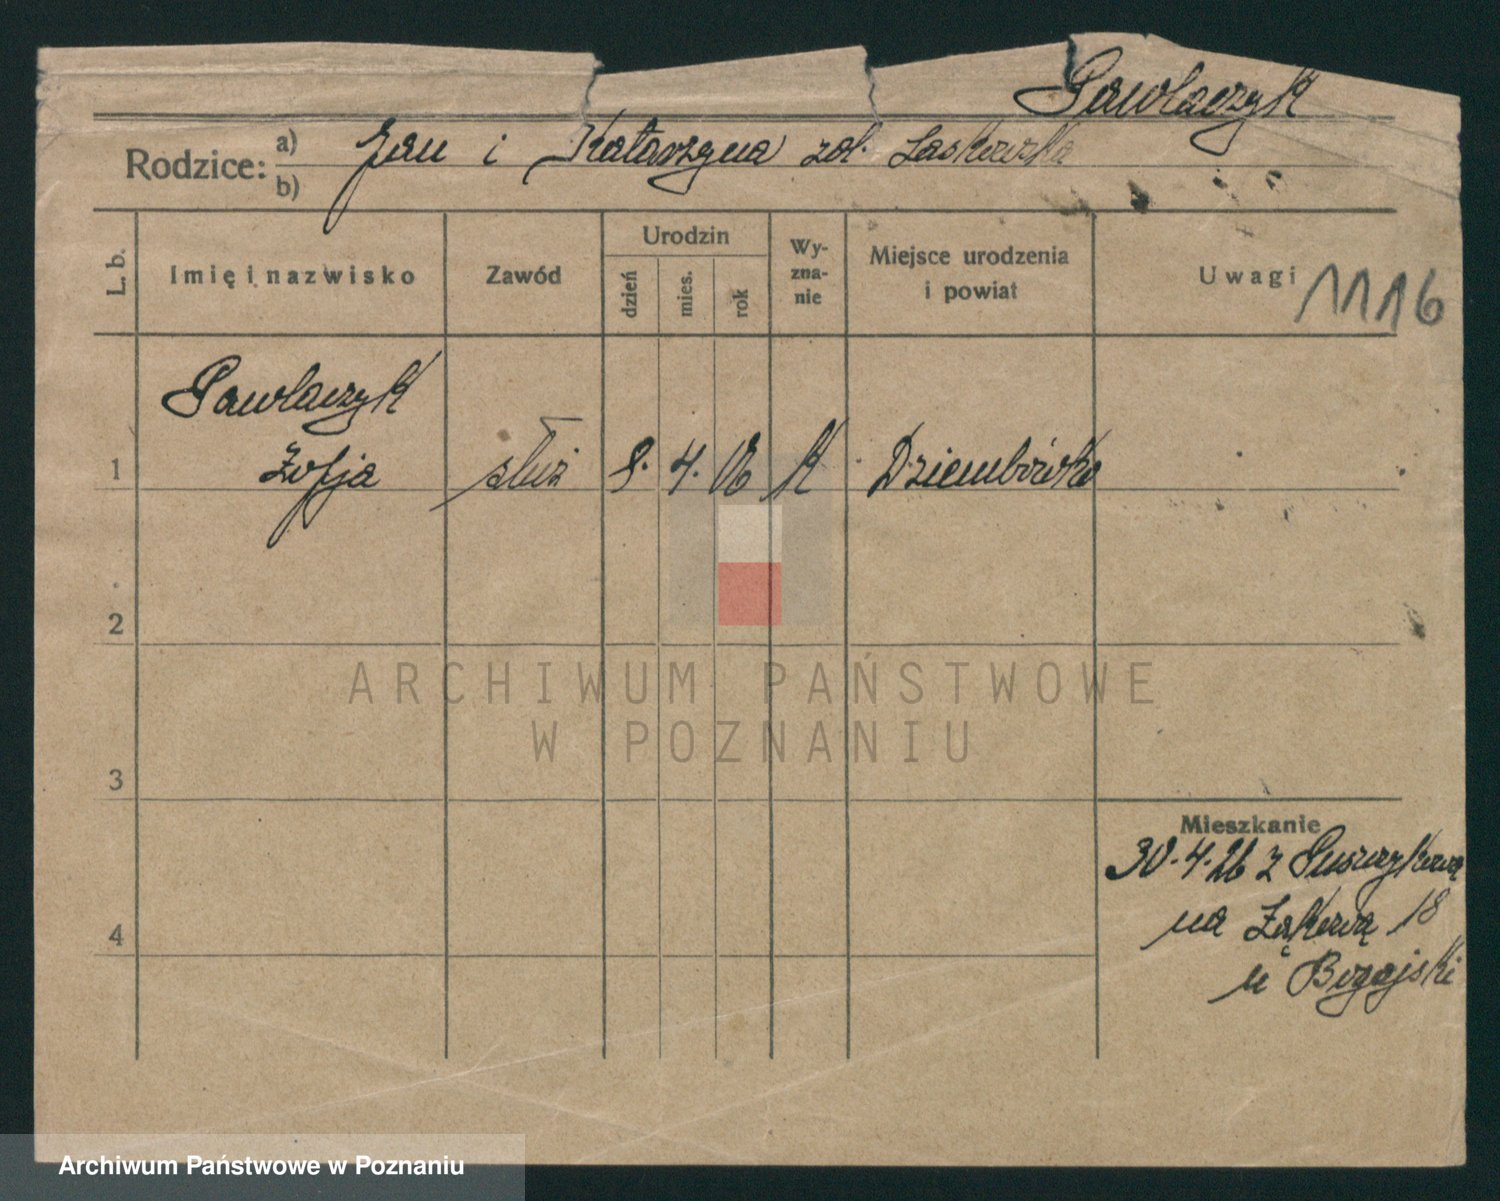 Pawlaczyk
Rodzice: a) Jan i Katarzyna
b)
L. b.
Imię i nazwisko
Zawód
Urodzin
dzień
mies.
rok
Wy-
zna-
nie
Miejsce urodzenia
i powiat
Uwagi
1116
Pawlaczyk
1 Zofja służ 8. 4. 06 K Dziembówko
2
3
4
Mieszkanie
30.4.26 z
na Łąkową 18
u Bogajski
ARCHIWUM PAŃSTWOWE
W POZNANIU
Archiwum Państwowe w Poznaniu